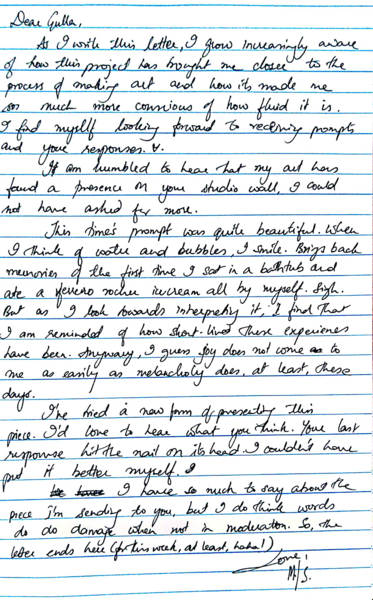 Dear Gulla,
As I write this letter, I grow increasingly aware
of how this project has brought me closer to the
process of making art and how its made me
so much more conscious of how fluid it is.
I find myself looking forward to receiving prompts
and your responses.
I am humbled to hear that my art has
found a presence on your studio wall, I could
not have asked for more.
This time's prompt was quite beautiful. When
I think of water and bubbles, I smile. Brings back
memories of the first time I sat in a bathtub and
ate a ferrero rocher icecream all by myself. Sigh.
But as I look towards interpreting it, I find that
I am reminded of how short-lived these experiences
have been. Anyway, I guess joy does not come to
me as easily as melancholy does, at least, these
days.
I've tried a new form of presenting this
piece. I'd love to hear what you think. Your last
response hit the nail on its head. I couldn't have
put it better myself. I
I have so much to say about the
piece I'm sending to you, but I do think words
do do damage when not in moderation. So, the
letter ends here (for this week, at least, haha!)
Love,
M/S.